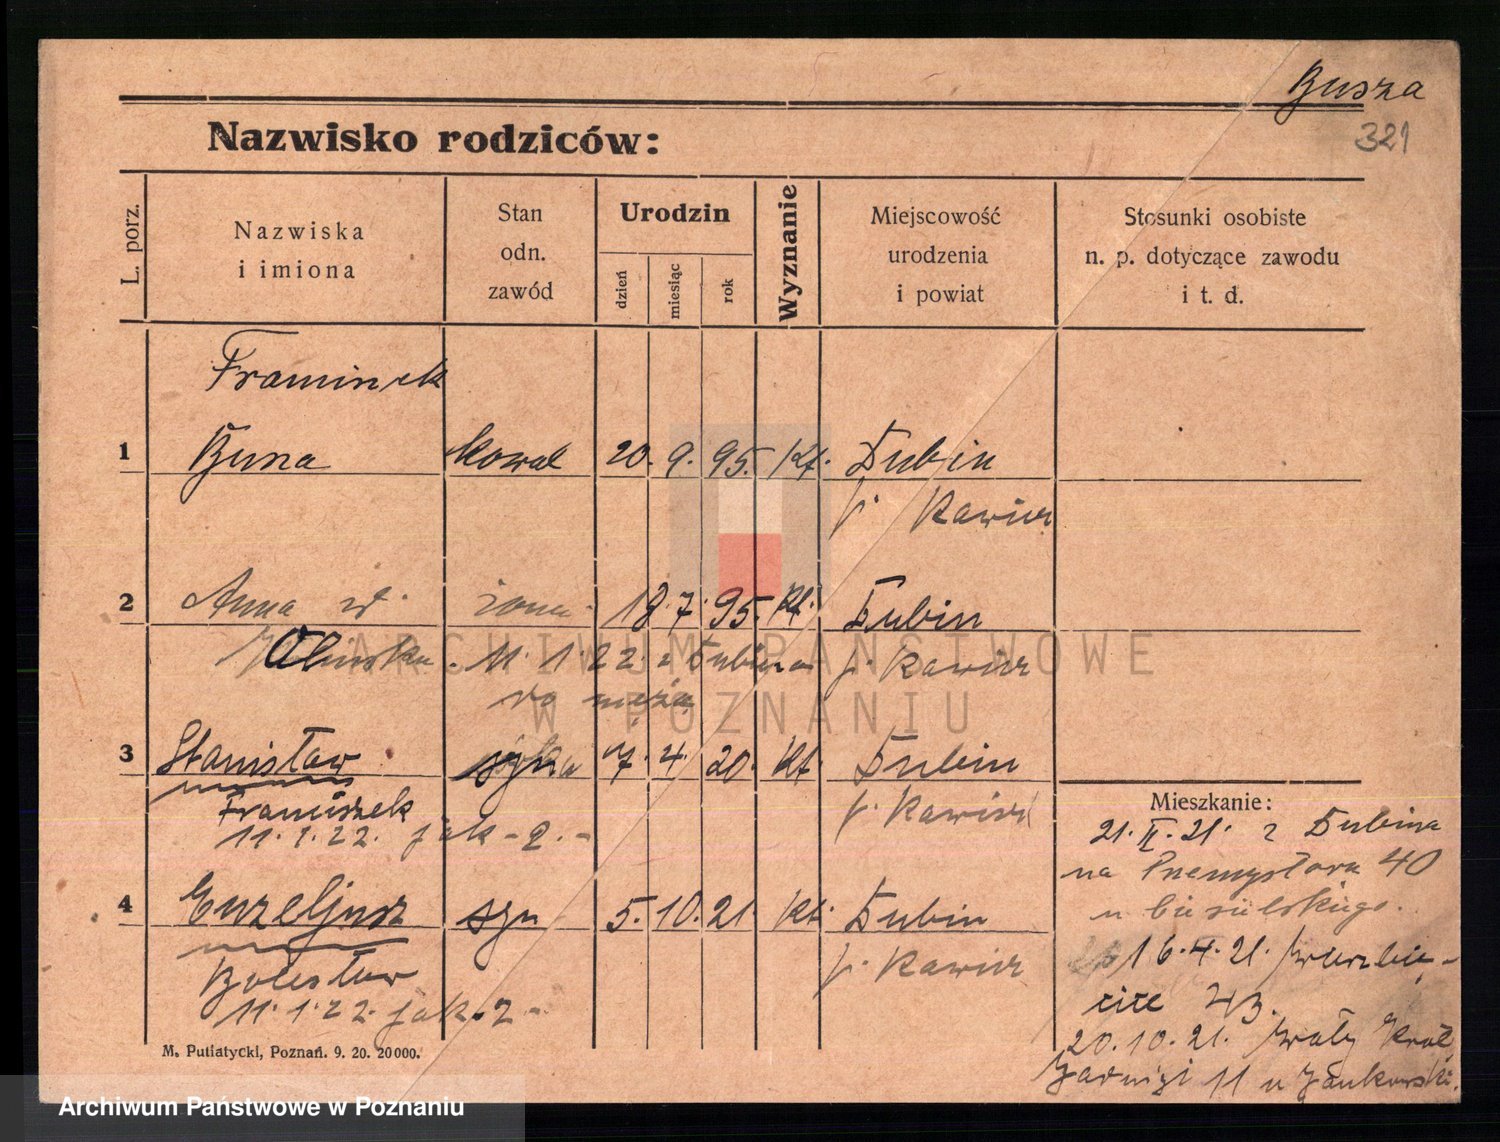 Busza
321
Nazwisko rodziców:
L. porz.
Nazwiska
i imiona
Stan
odn.
zawód
Urodzin
dzień
miesiąc
rok
Wyznanie
Miejscowość
urodzenia
i powiat
Stosunki osobiste
n. p. dotyczące zawodu
i t. d.
Franciszek
1 Busza kowal 20. 9. 95. kt. Dubin
p. Rawicz
2 Anna żona 18. 7. 95. kt. Dubin
11. 1. 22. z Dubina p. Rawicz
do męża
3 Stanisław syn 7. 4. 20. kt. Dubin
Franciszek p. Rawicz
11. 1. 22. jak - 2. -
4 syn 5. 10. 21. kt. Dubin
Bolesław p. Rawicz
11. 1. 22. jak - 2 -
Mieszkanie:
21. II. 21. z Dubina
na Przemysłowa 40
u
16. 4. 21.
20. 10. 21. Wały Król.
Jadwigi 11 u Jankowski.
M. Putiatycki, Poznań. 9. 20. 20000.
ARCHIWUM PAŃSTWOWE
W POZNANIU
Archiwum Państwowe w Poznaniu